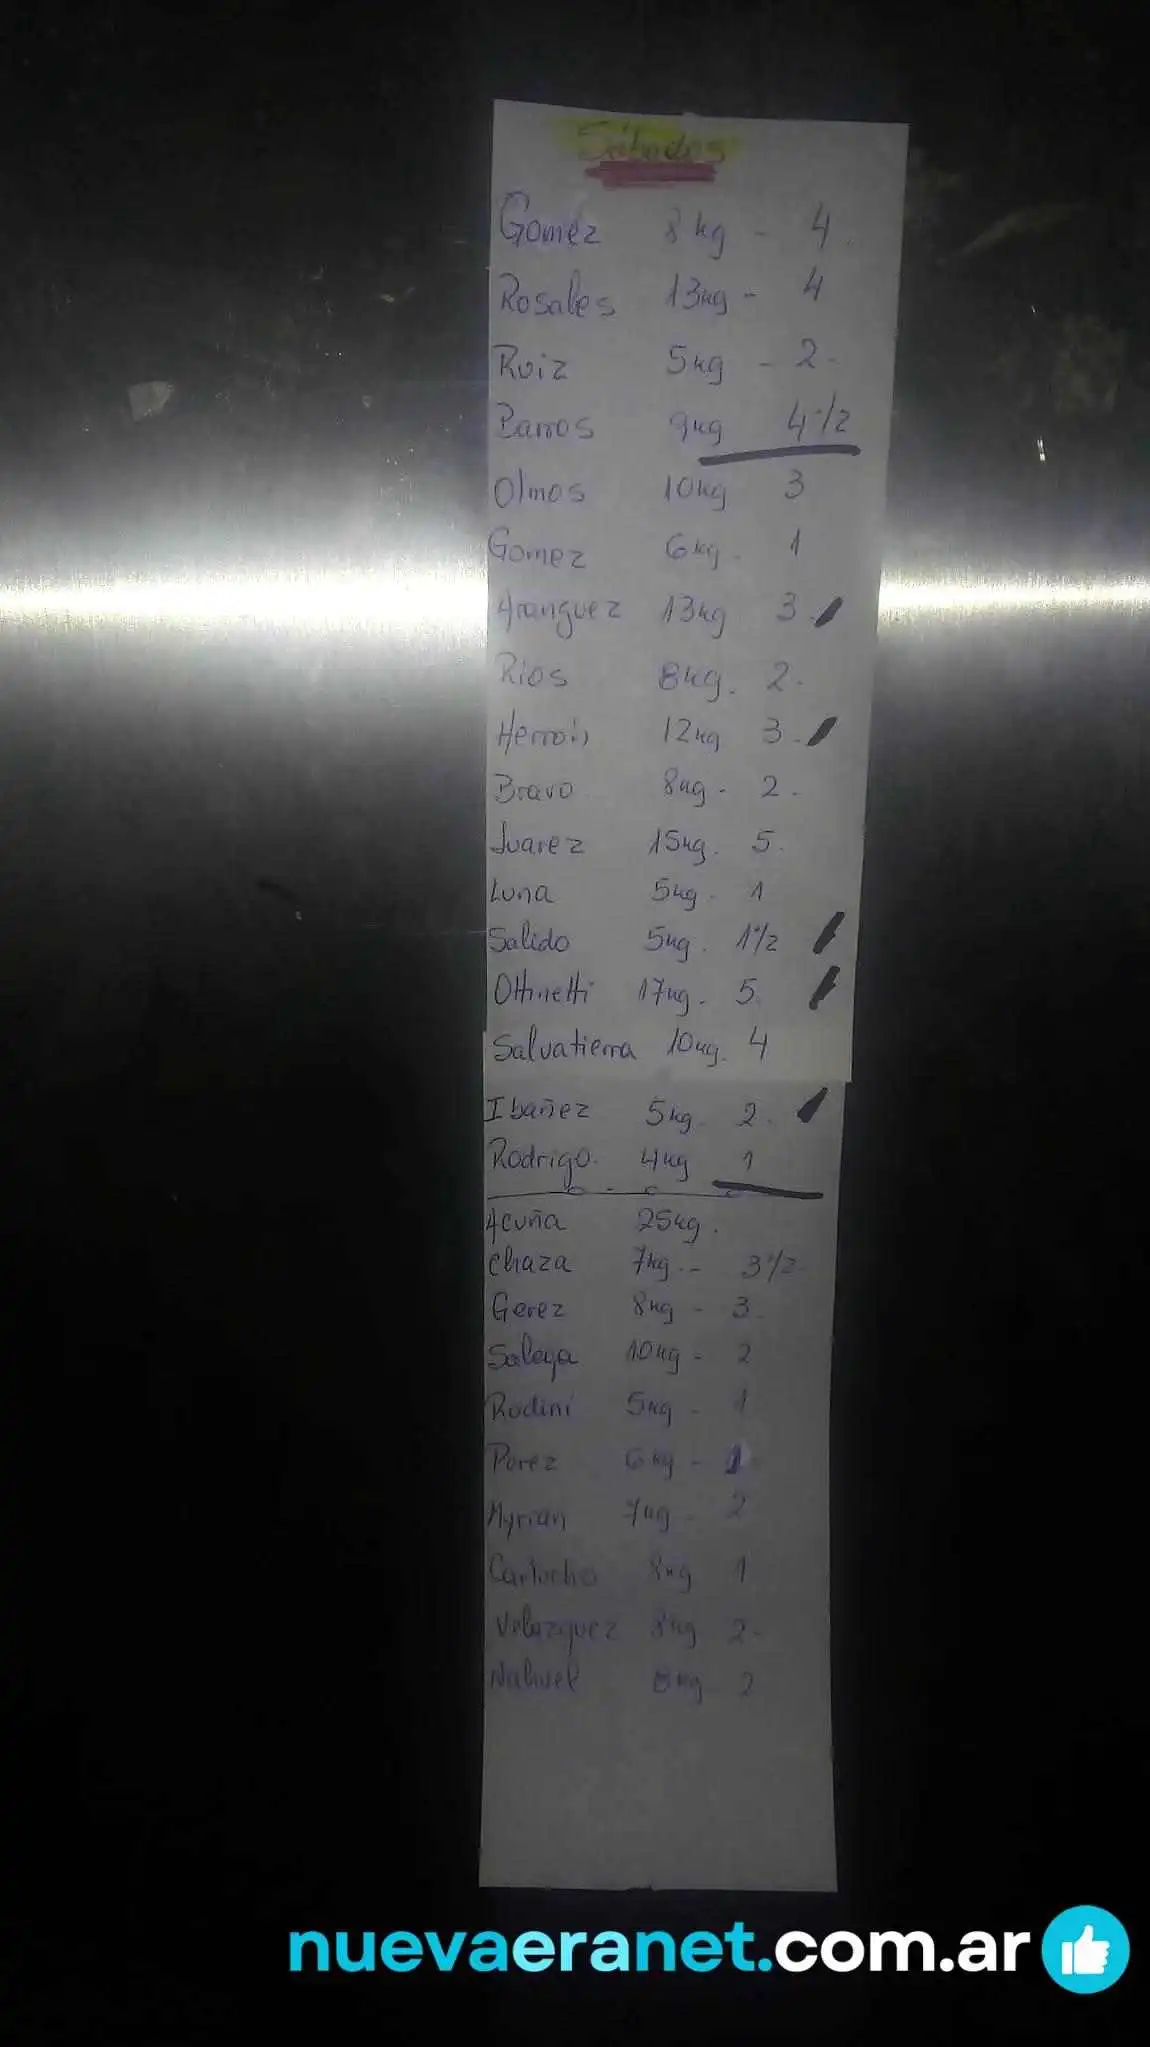 Sábados
Gomez 8kg - 4
Rosales 13kg - 4
Ruiz 5kg - 2-
Barros 9kg 4 1/2
Olmos 10kg 3
Gomez 6kg. 1
Aranguez 13kg 3.
Rios 8kg. 2.
Herroin 12kg 3-
Bravo 8kg - 2-
Juarez 15kg. 5.
Luna 5kg - 1
Salido 5kg. 1 1/2
Ottinetti 17kg. 5.
Salvatierra 10kg. 4
Ibañez 5kg. 2.
Rodrigo. 4kg 1
Acuña 25kg.
Chaza 7kg -- 3 1/2-
Gerez 8kg - 3.
10kg - 2
Rodini 5kg - 1
Perez 6kg - 1
Myrian 7kg - 2
Cartucho 8kg 1
Velazquez 8kg 2-
Nahuel 8kg 2
nuevaeranet.com.ar